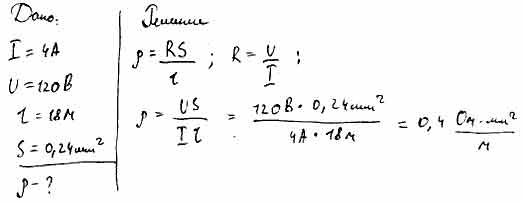 Дано:
I = 4А
U = 120В
l = 18м
S = 0,24мм²
ρ - ?
Решение
ρ = RS/l ; R = U/I ;
ρ = US/Il = 120В · 0,24мм²/4А · 18м = 0,4 Ом · мм²/м